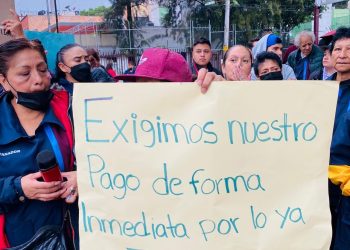 Exigimos nuestro
Pago de forma
Inmediata por lo ya